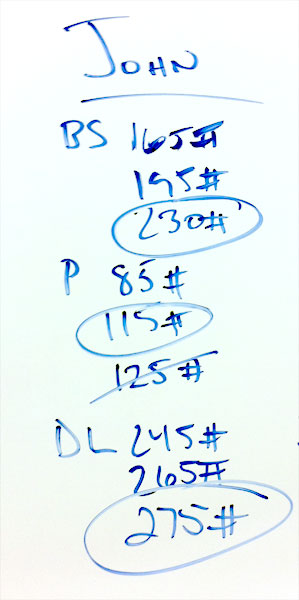 JOHN
BS 165#
195#
230#
P 85#
115#
125#
DL 245#
265#
275#